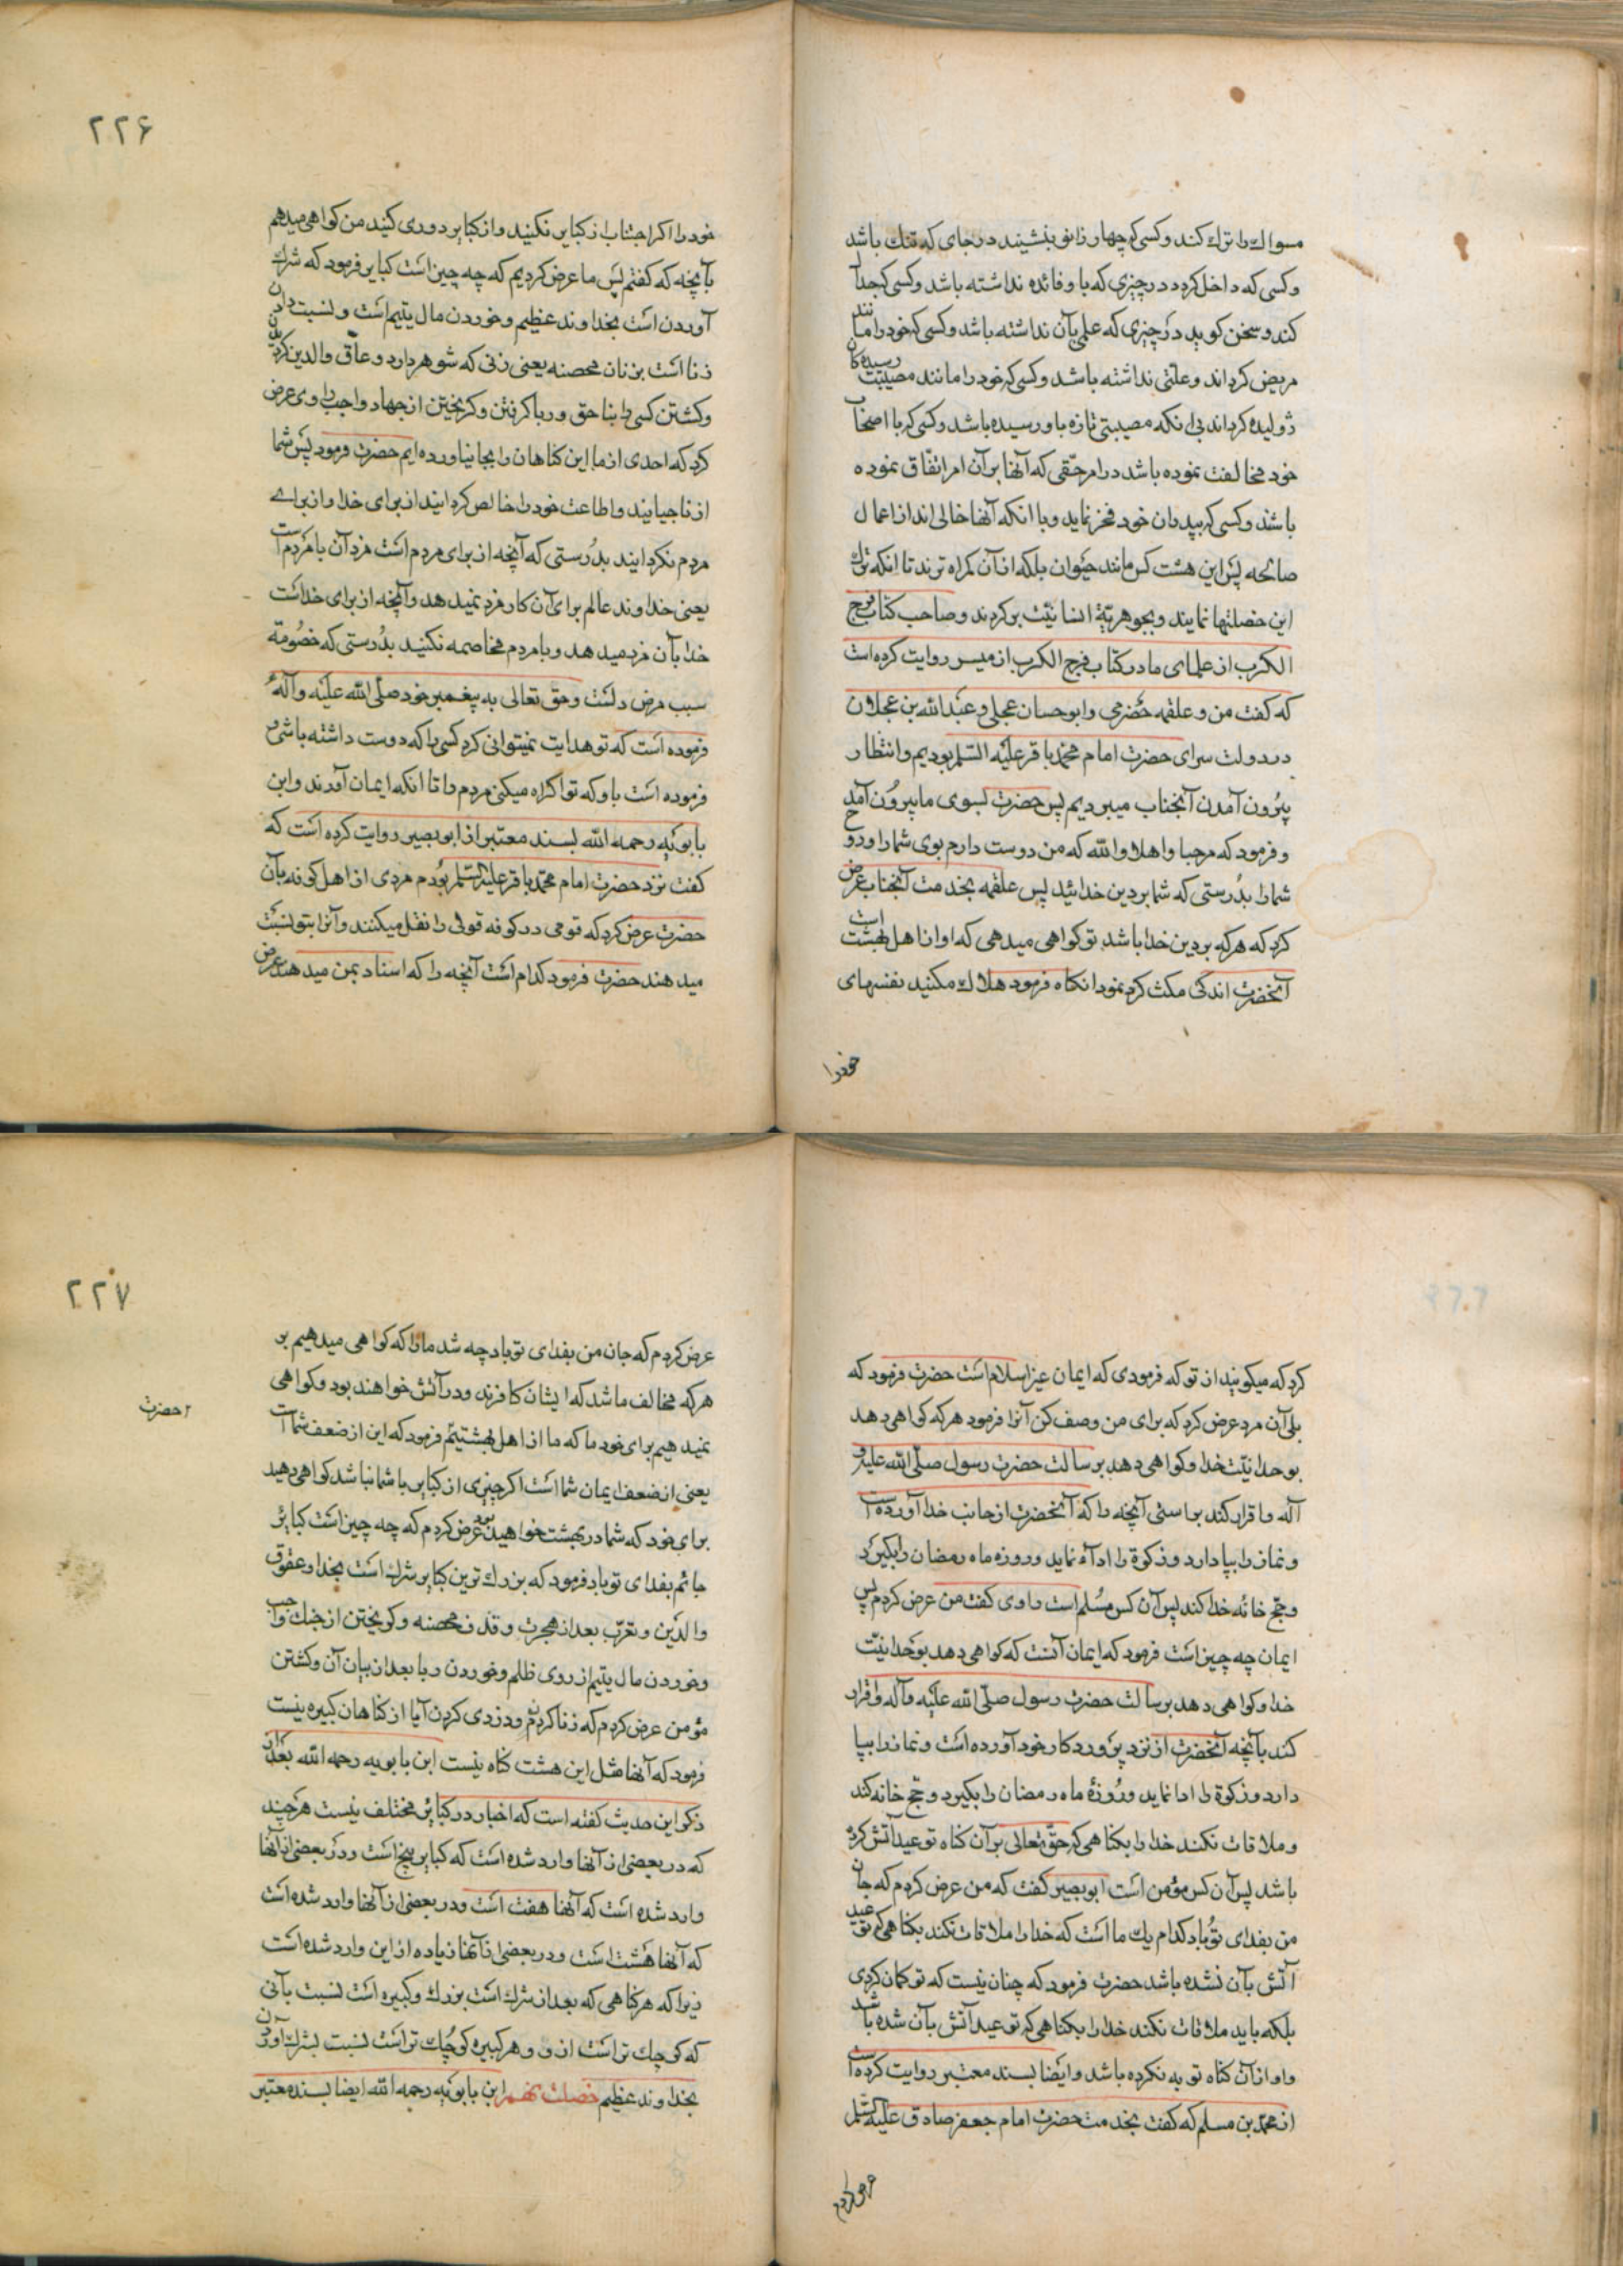 مسواك را ترك كند و كسى كه چهار زانو بنشيند در جاى كه تنك باشد
و كسى كه داخل كردد در چيزى كه باو فائده نداشته باشد و كسى كه جدال
كند و سخن كويد در چيزى كه علم بآن نداشته باشد و كسى كه خود را مانند
مريض كرداند و علتى نداشته باشد و كسى كه خود را مانند مصيبت رسيده كان
ژوليده كرداند بى انكه مصيبتى تازه باو رسيده باشد و كسى كه با اصحاب
خود مخالفت نموده باشد در امر حقى كه آنها بر آن امر اتفاق نموده
باشند و كسى كه بپدران خود فخر نمايد و با انكه آنها خالى اند از اعمال
صالحه پس اين هشت كس مانند حيوان بلكه از آن كمراه ترند تا انكه ترك
اين خصلتها نمايند و بجوهريّة انسانيّت بر كردند و صاحب كتاب فرج
الكرب از علماى ما در كتاب فرج الكرب از ميسر روايت كرده است
كه كفت من و علقمه حضرمى و ابو حسان عجلى و عبد الله بن عجلان
در دولت سراى حضرت امام محمد باقر عليه السلم بوديم و انتظار
بيرون آمدن آنجناب ميبرديم پس حضرت بسوى ما بيرون آمد
و فرمود كه مرحبا و اهلا والله كه من دوست دارم بوى شما را و روح
شما را بدرستى كه شما بر دين خدائيد پس علقمه بخدمت آنجناب عرض
كرد كه هر كه بر دين خدا باشد تو كواهى ميدهى كه او از اهل بهشت است
آنحضرت اندكى مكث كرد نمود انكاه فرمود هلاك مكنيد نفسهاى
خود را
٢٢۶
خود را اكر اجتناب از كباير نكنيد و از كباير دورى كنيد من كواهى ميدهم
بآنچه كه كفتم پس ما عرض كرديم كه چه چيز است كباير فرمود كه شرك
آوردن است بخداوند عظيم و خوردن مال يتيم است و نسبت دادن
زنا است بزنان محصنه يعنى زنى كه شوهر دارد و عاق والدين كردن
و كشتن كسى را بنا حق و ربا كرفتن و كريختن از جهاد واجب راوى عرض
كرد كه احدى از ما اين كناهان را بجا نياورده ايم حضرت فرمود پس شما
از ناجيانيد و اطاعت خود را خالص كردانيد از براى خدا و از براى
مردم نكردانيد بدرستى كه آنچه از براى مردم است مزد آن با مردم است
يعنى خداوند عالم براى آن كار مزد نميدهد و آنچه از براى خداست
خدا بآن مزد ميدهد و با مردم مخاصمه نكنيد بدرستى كه خصومة
سبب مرض دلست و حق تعالى به پيغمبر خود صلّى الله عليه و آله
فرموده است كه تو هدايت نميتوانى كرد كسى را كه دوست داشته باشى و
فرموده است باو كه تو اكراه ميكنى مردم را تا انكه ايمان آورند و ابن
بابويه رحمه الله بسند معتبر از ابو بصير روايت كرده است كه
كفت نزد حضرت امام محمد باقر عليه السلم بودم مردى از اهل كوفه بآن
حضرت عرض كرد كه قومى در كوفه قولى را نقل ميكنند و آنرا بتو نسبت
ميدهند حضرت فرمود كدام است آنچه را كه اسناد بمن ميدهند عرض
كرد كه ميكويند از تو كه فرمودى كه ايمان غير اسلام است حضرت فرمود كه
بلى آن مرد عرض كرد كه براى من وصف كن آنرا فرمود هر كه كواهى دهد
بوحدانيّت خدا و كواهى دهد برسالت حضرت رسول صلّى الله عليه و
آله و اقرار كند براستى آنچه را كه آنحضرت از جانب خدا آورده است
و نماز را بپا دارد و زكوة را ادا نمايد و روزه ماه رمضان را بكيرد
و حج خانه خدا كند پس آن كس مسلم است راوى كفت من عرض كردم پس
ايمان چه چيز است فرمود كه ايمان آنست كه كواهى دهد بوحدانيّت
خدا و كواهى دهد برسالت حضرت رسول صلّى الله عليه و آله و اقرار
كند بآنچه آنحضرت از نزد پرورد كار خود آورده است و نماز را بپا
دارد و زكوة را ادا نمايد و روزۀ ماه رمضان را بكيرد و حج خانه كند
و ملاقات نكند خدا را بكناهى كه حق تعالى بر آن كناه توعيد آتش كرده
باشد پس آن كس مؤمن است ابو بصير كفت كه من عرض كردم كه جان
من بفداى تو باد كدام يك ما است كه خدا را ملاقات نكند بكناهى كه توعيد
آتش بآن نشده باشد حضرت فرمود كه چنان نيست كه تو كمان كردى
بلكه بايد ملاقات نكند خدا را بكناهى كه توعيد آتش بآن شده باشد
و او از آن كناه توبه نكرده باشد و ايضا بسند معتبر روايت كرده است
از محمد بن مسلم كه كفت بخدمت حضرت امام جعفر صادق عليه السلم
عرض كردم
٢٢٧
عرض كردم كه جان من بفداى تو باد چه شد ما را كه كواهى ميدهيم بر
هر كه مخالف ما شد كه ايشان كافرند و در آتش خواهند بود و كواهى
نميدهيم براى خود ما كه ما از اهل بهشتيم فرمود كه اين از ضعف شما است
حضرت
يعنى از ضعف ايمان شما است اكر چيزى از كباير با شما نباشد كواهى دهيد
براى خود كه شما در بهشت خواهيد بود عرض كردم كه چه چيز است كبائر
جانم بفداى تو باد فرمود كه بزرك ترين كباير شرك است بخدا و عقوق
والدين و تعرّب بعد از هجرت و قذف محصنه و كريختن از جنك واجب
و خوردن مال يتيم از روى ظلم و خوردن ربا بعد از بيان آن و كشتن
مؤمن عرض كردم كه زنا كردن و دزدى كردن آيا از كناهان كبيره نيست
فرمود كه آنها مثل اين هشت كناه نيست ابن بابويه رحمه الله بعد از
ذكر اين حديث كفته است كه اخبار در كبائر مختلف نيست هر چند
كه در بعضى از آنها وارد شده است كه كباير پنج است و در بعضى از آنها
وارد شده است كه آنها هفت است و در بعضى از آنها وارد شده است
كه آنها هشت است و در بعضى از آنها زياده از اين وارد شده است
زيرا كه هر كناهى كه بعد از شرك است بزرك و كبيره است نسبت بآنى
كه كوچك تر است از و و هر كبيره كوچك تر است نسبت بشرك آوردن
بخداوند عظيم خصلت نهم ابن بابويه رحمه الله ايضا بسند معتبر